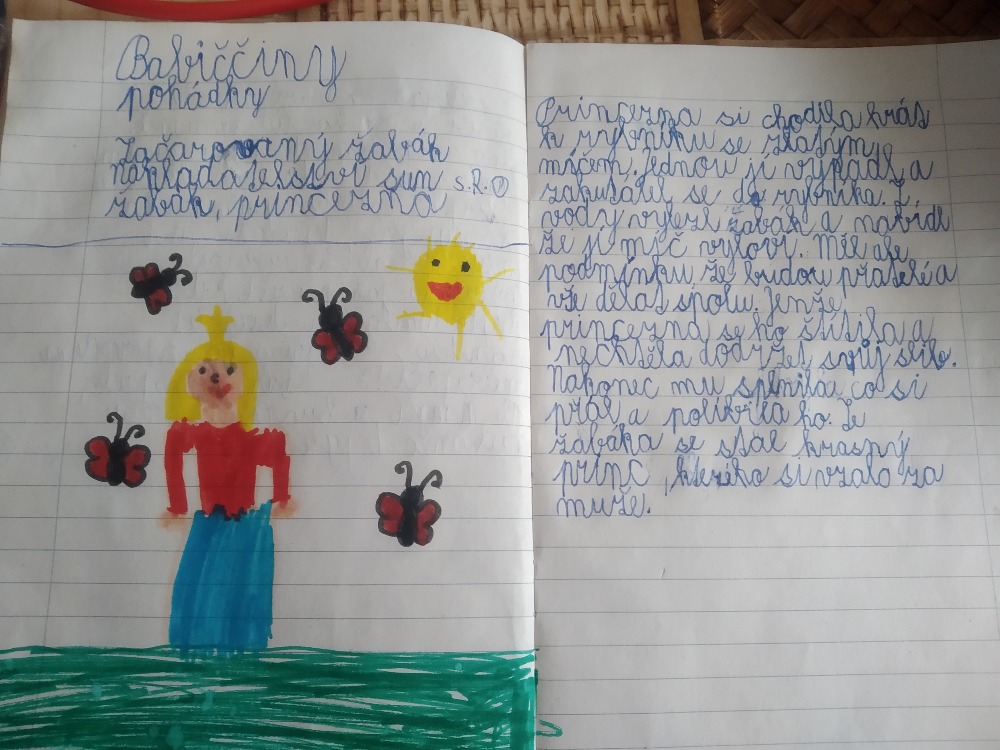 Babiččiny
pohádky
Začarovaný žabák
nakladatelství sun s.r.o
žabák, princezna
Princezna si chodila hrát
k rybníku se zlatým
míčem. Jednou jí vypadl a
zakutálel se do rybníka. Z
vody vylezl žabák a nabídl
že jí míč vyloví. Měl ale
podmínku že budou přátelé a
vše dělat spolu. Jenže
princezna se ho štítila a
nechtěla dodržet svůj slib.
Nakonec mu splnila co si
přál a políbila ho. Ze
žabáka se stal krasný
princ, kterého si vzala za
muže.